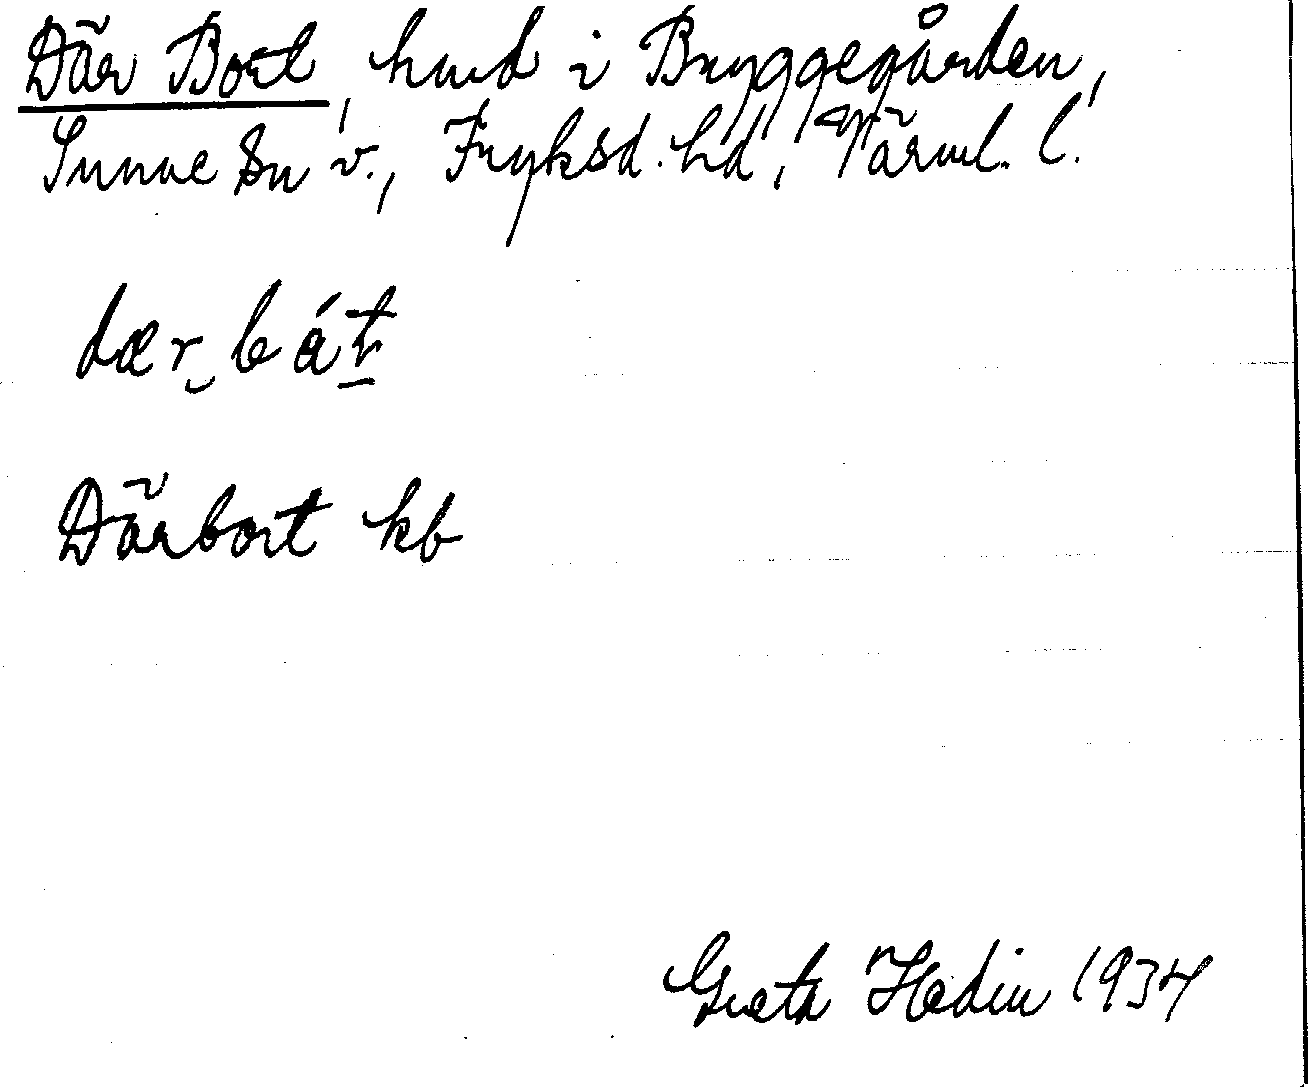 Där Bort, hmd i Bryggegården,
Sunne sn v., Fryksd. hd, Värml. l.
dær‿bát̠
Därbort kb
Greta Hedin 1934